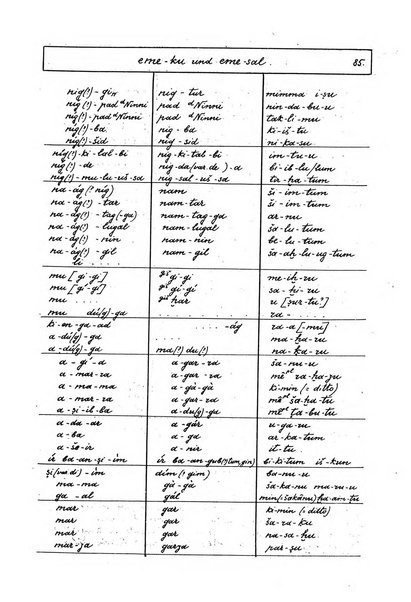 eme-ku und eme-sal. 85.
nig(!)-gi₄ nig-tur mimma i-ṣu
nig(!)-pad ᵈNinni pad ᵈNinni nin-da-bu-u
nig(!)-pad ᵈNinni pad ᵈNinni tak-li-mu
nig(!)-ba nig-ba ki-iš-tu
nig(!)-šid nig-šid ni-ka-su
nig(!)-ki-lal-bi nig-ki-lal-bi im-tu-u
nig(!)-de nig-da(var. de)-a bi-ib-lu/tum
nig(!)-mu-lu-uš-sá nig-sal-uš-sá tir-ha-tum
na-ág(? nig) nam ši-im-tum
na-ág(!)-tar nam-tar ši-im-tum
na-ág(!)-tag(-ga) nam-tag-ga ar-nu
na-ág(!)-lugal nam-lugal ša-lu-tum
na-ág(!)-nin nam-nin be-lu-tum
na-ág(!)-gil nam-gil ša-aḫ-lu-uq-tum
li ....
mu [gi-gi] ᵍⁱˢgi-gi me-iḫ-ru
mu [gi-gi] ᵍⁱˢgi-gi sa-ḫi-ru
mu .... ᵍⁱˢḫar u [ṣur-tu?]
mu dú(g)-ga ra- ....
ki-en-ga-ad -ág ra-a [-mu]
a-dú(g)-ga ma-ḫa-ru
a-dú(g)-ga ma(!) du(!) na-ka-ru
a-gí-a a-gar-ra
a-mar-ra a-gar-ra mêᵖˡ ra-ḫa-ṣu
a-ma-ma a-gá-gá kimin (= ditto)
a-mar-ra a-gar-ra mêᵖˡ šaḫu-tu
a-ṣi-ib-ba a-du(g)-ga mêᵖˡ ṭa-bu-tu
a-da-ar a-gár u-ga-ru
a-ba a-ga ar-ka-tum
a-ša-ir it-tu
ír ba-an-ṣi-im ír ba-an-gub(?)(tum, gin) bi-ki-tum iš-kun
ṣi(var. de)-im dím(= gim) ba-nu-u
ma-ma gá-gá ša-ka-nu ma-ru-u
ga-al gál min(= šakânu) ḫa-am-tu
mar gar kimin (= ditto)
mar gar ša-ra-ku
mar gar na-sa-ḫu
mar-za garza par-ṣu